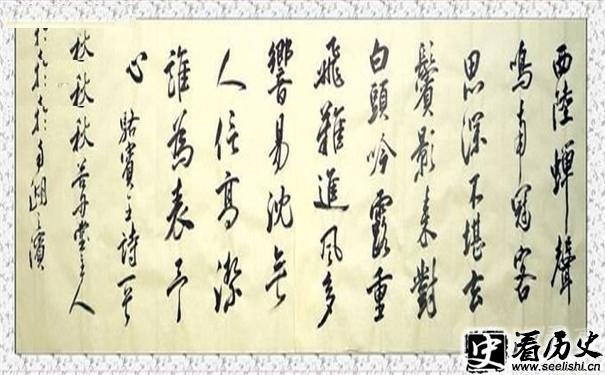 西陸蟬聲
鳴南冠客
思深不堪玄
鬢影来對
白頭吟露重
飛難進風多
響易沈無
人信高潔
誰為表予
心 駱賓王詩一首
秋秋秋 堂主人
南湖之濱
史 看历史
www.seelishi.cn